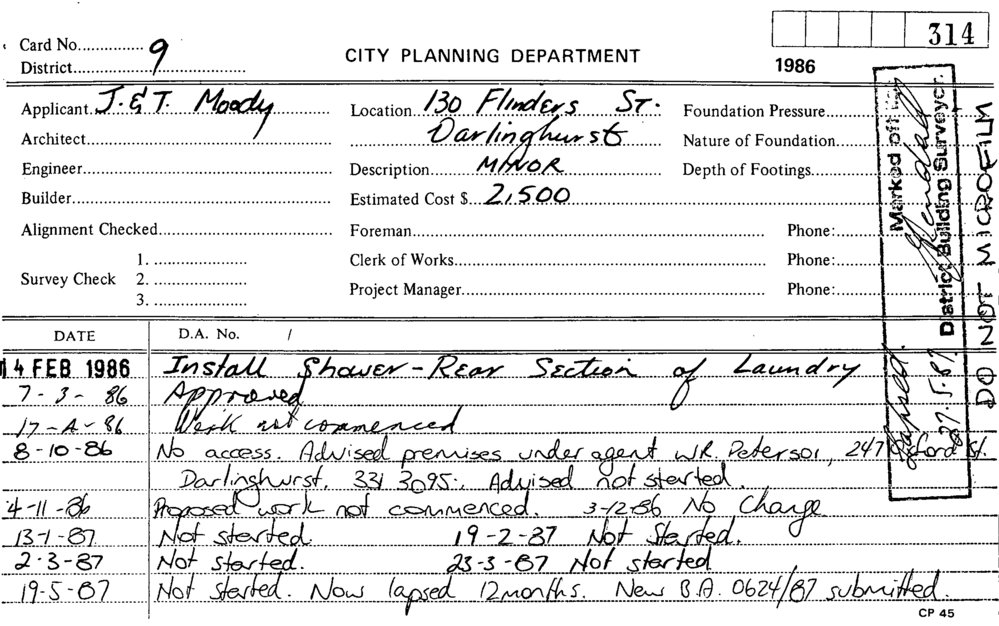 Card No............... 9
District.......................................
CITY PLANNING DEPARTMENT
314
1986
Applicant J. & T. Moody
Location 130 Flinders St.
Foundation Pressure
Architect
Darlinghurst
Nature of Foundation
Engineer
Description MINOR
Depth of Footings
Builder
Estimated Cost $ 2,500
Alignment Checked
Foreman
Phone:
Survey Check
1.
2.
3.
Clerk of Works
Phone:
Project Manager
Phone:
Marked off
District Building Surveyor.
Lapsed. 27.5.87
DO NOT MICROFILM
DATE
D.A. No. /
14 FEB 1986 Install Shower - Rear Section of Laundry
7-3-86 Approved
17-4-86 Work not commenced
8-10-86 No access. Advised premises under agent W.R. Peterson, 247 Oxford St.
Darlinghurst. 331 3095. Advised not started.
4-11-86 Proposed work not commenced. 3-12-86 No Change
13-1-87 Not started. 19-2-87 Not Started.
2-3-87 Not started. 23-3-87 Not started
19-5-87 Not started. Now lapsed 12months. New B.A. 0624/87 submitted.
CP 45